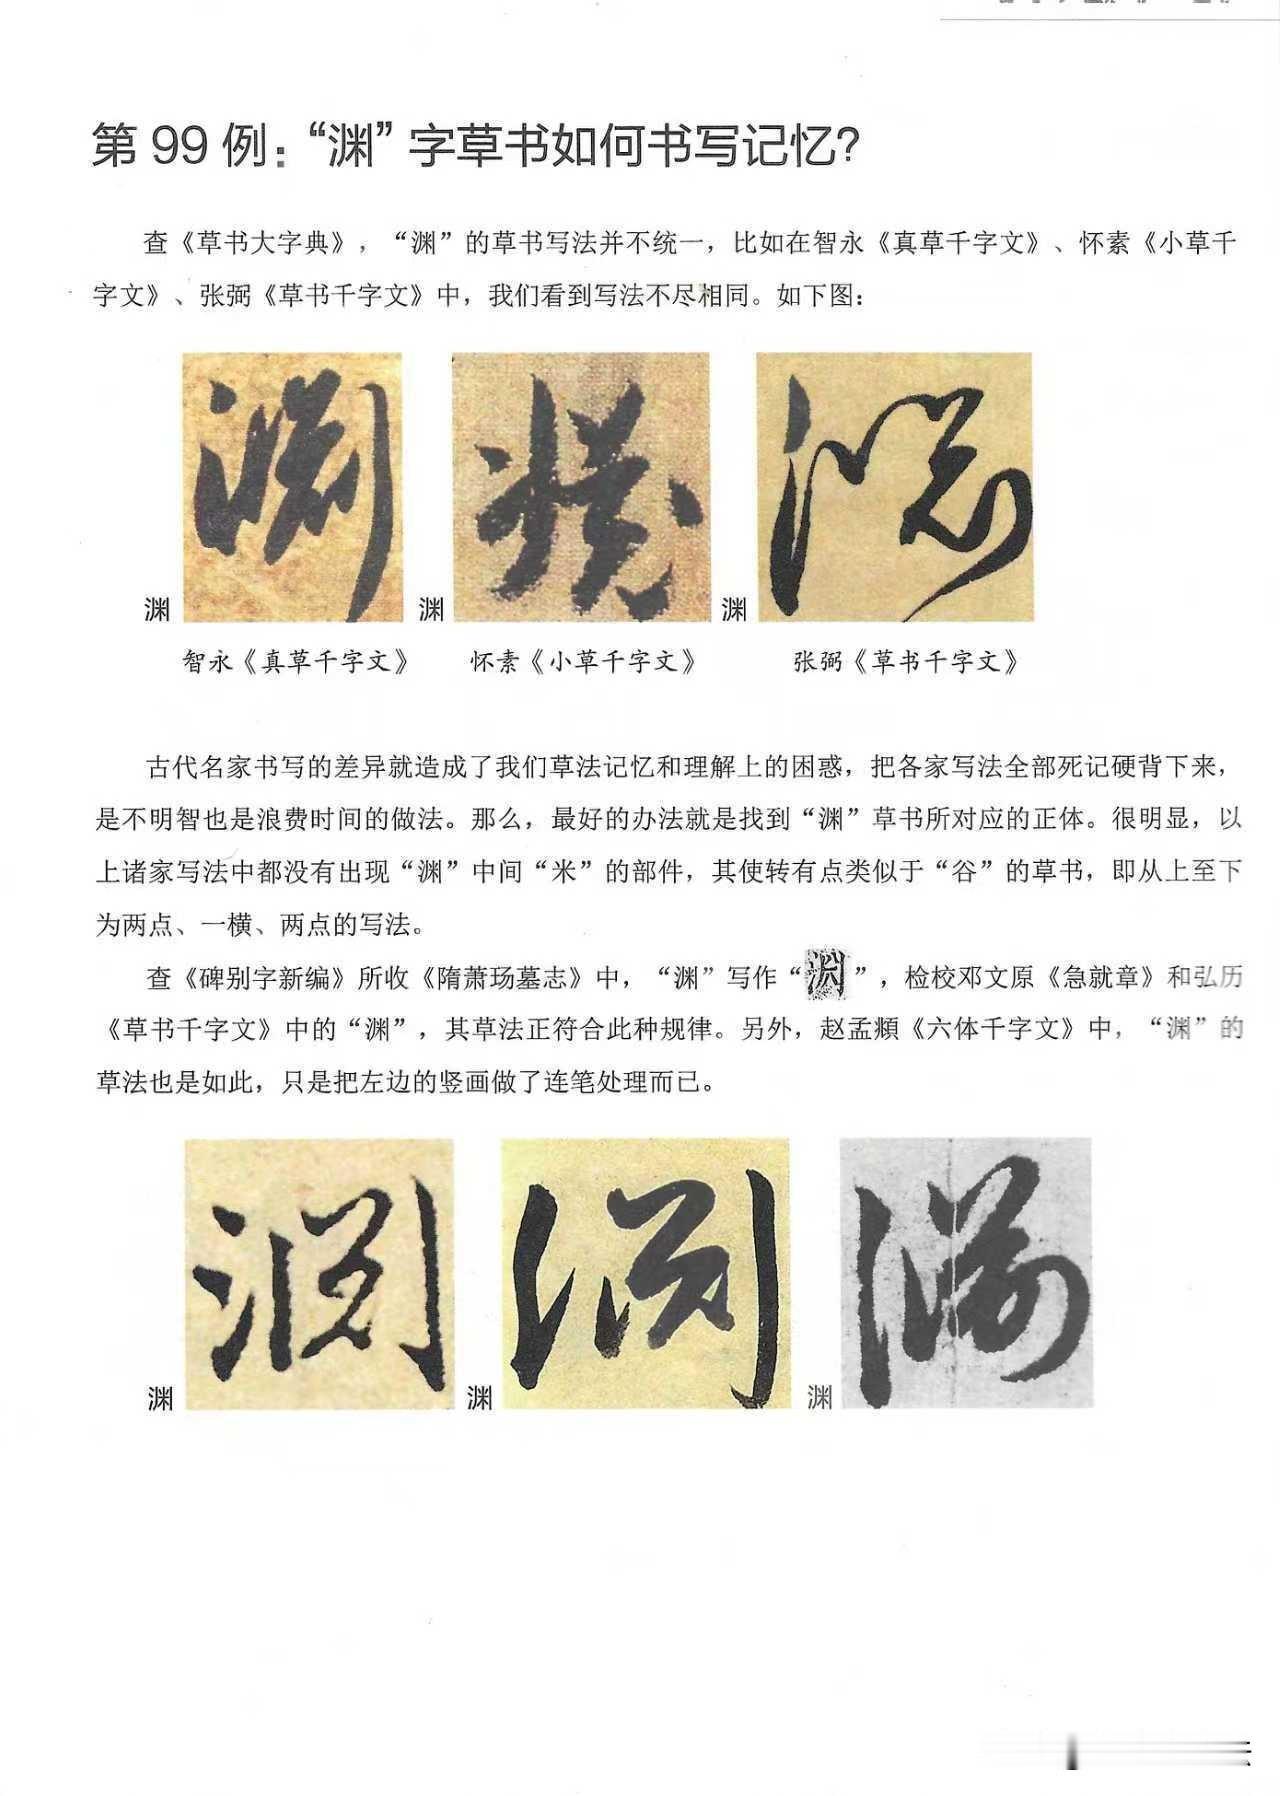 第 99 例：“渊”字草书如何书写记忆？
查《草书大字典》，“渊”的草书写法并不统一，比如在智永《真草千字文》、怀素《小草千
字文》、张弼《草书千字文》中，我们看到写法不尽相同。如下图：
渊 渊 渊
智永《真草千字文》 怀素《小草千字文》 张弼《草书千字文》
古代名家书写的差异就造成了我们草法记忆和理解上的困惑，把各家写法全部死记硬背下来，
是不明智也是浪费时间的做法。那么，最好的办法就是找到“渊”草书所对应的正体。很明显，以
上诸家写法中都没有出现“渊”中间“米”的部件，其使转有点类似于“谷”的草书，即从上至下
为两点、一横、两点的写法。
查《碑别字新编》所收《隋萧玚墓志》中，“渊”写作“”，检校邓文原《急就章》和弘历
《草书千字文》中的“渊”，其草法正符合此种规律。另外，赵孟頫《六体千字文》中，“渊”的
草法也是如此，只是把左边的竖画做了连笔处理而已。
渊 渊 渊